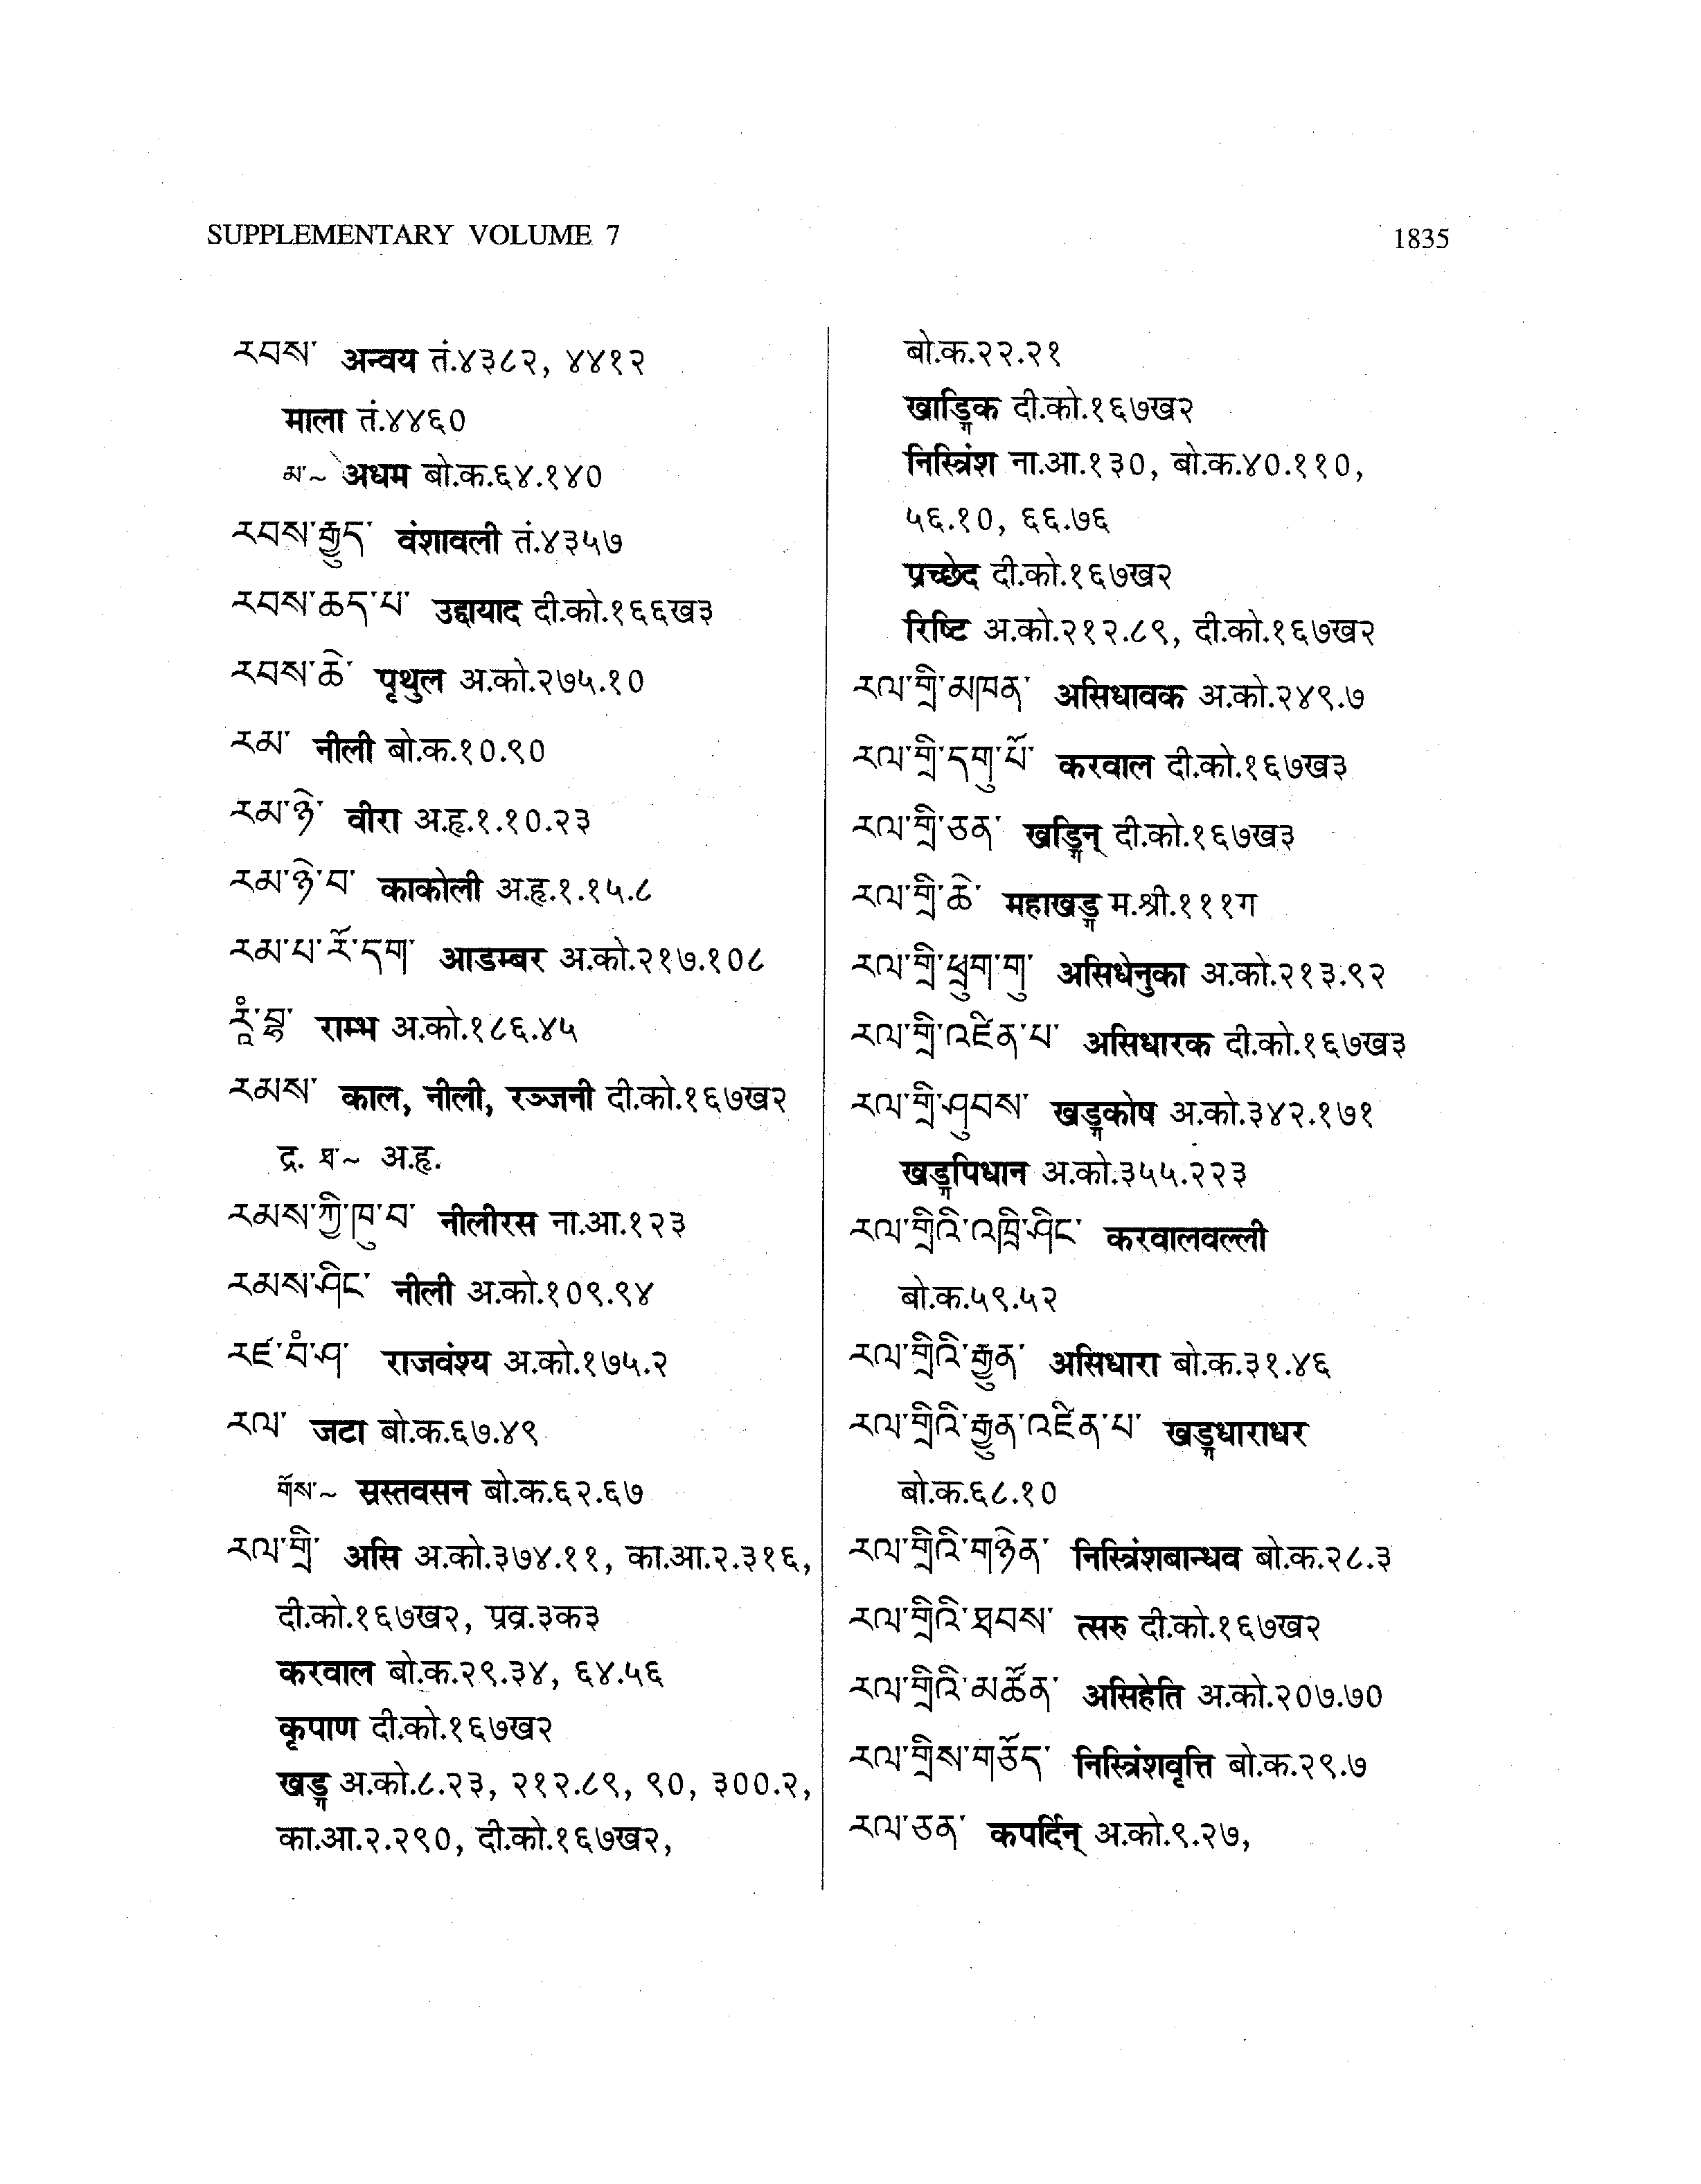 SUPPLEMENTARY VOLUME 7
1835
རབས་ अन्वय तं.४३८२, ४४१२
माला तं.४४६०
མ་~ अधम बो.क.६४.१४०
རབས་རྒྱུད་ वंशावली तं.४३५७
རབས་ཆད་པ་ उद्दायाद दी.को.१६६ख३
རབས་ཆེ་ पृथुल अ.को.२७५.१०
རམ་ नीली बो.क.१०.९०
རམ་ཉེ་ वीरा अ.हृ.१.१०.२३
རམ་ཉེ་བ་ काकोली अ.हृ.१.१५.८
རམ་པ་རོ་དག་ आडम्बर अ.को.२१७.१०८
राम्भ अ.को.१८६.४५
རམས་ काल, नीली, रञ्जनी दी.को.१६७ख२
द्र. ཐ་~ अ.हृ.
རམས་ཀྱི་ཁུ་བ་ नीलीरस ना.आ.१२३
རམས་ཤིང་ नीली अ.को.१०९.९४
རཛ་བཾ་ཤ་ राजवंश्य अ.को.१७५.२
རལ་ जटा बो.क.६७.४९
གོས་~ स्रस्तवसन बो.क.६२.६७
རལ་གྲི་ असि अ.को.३७४.११, का.आ.२.३१६,
दी.को.१६७ख२, प्रव्र.३क३
करवाल बो.क.२९.३४, ६४.५६
कृपाण दी.को.१६७ख२
खड्ग अ.को.८.२३, २१२.८९, ९०, ३००.२,
का.आ.२.२९०, दी.को.१६७ख२,
बो.क.२२.२१
खाड्गिक दी.को.१६७ख२
निस्त्रिंश ना.आ.१३०, बो.क.४०.११०,
५६.१०, ६६.७६
प्रच्छेद दी.को.१६७ख२
रिष्टि अ.को.२१२.८९, दी.को.१६७ख२
རལ་གྲི་མཁན་ असिधावक अ.को.२४९.७
རལ་གྲི་དགུ་པོ་ करवाल दी.को.१६७ख३
རལ་གྲི་ཅན་ खड्गिन् दी.को.१६७ख३
རལ་གྲི་ཆེ་ महाखड्ग म.श्री.१११ग
རལ་གྲི་ཕྲུག་གུ་ असिधेनुका अ.को.२१३.९२
རལ་གྲི་འཛིན་པ་ असिधारक दी.को.१६७ख३
རལ་གྲི་ཤུབས་ खड्गकोष अ.को.३४२.१७१
खड्गपिधान अ.को.३५५.२२३
རལ་གྲིའི་འཁྲི་ཤིང་ करवालवल्ली
बो.क.५९.५२
རལ་གྲིའི་རྒྱུན་ असिधारा बो.क.३१.४६
རལ་གྲིའི་རྒྱུན་འཛིན་པ་ खड्गधाराधर
बो.क.६८.१०
རལ་གྲིའི་གཉེན་ निस्त्रिंशबान्धव बो.क.२८.३
རལ་གྲིའི་ཐབས་ त्सरु दी.को.१६७ख२
རལ་གྲིའི་མཚོན་ असिहेति अ.को.२०७.७०
རལ་གྲིས་གཅོད་ निस्त्रिंशवृत्ति बो.क.२९.७
རལ་ཅན་ कपर्दिन् अ.को.९.२७,